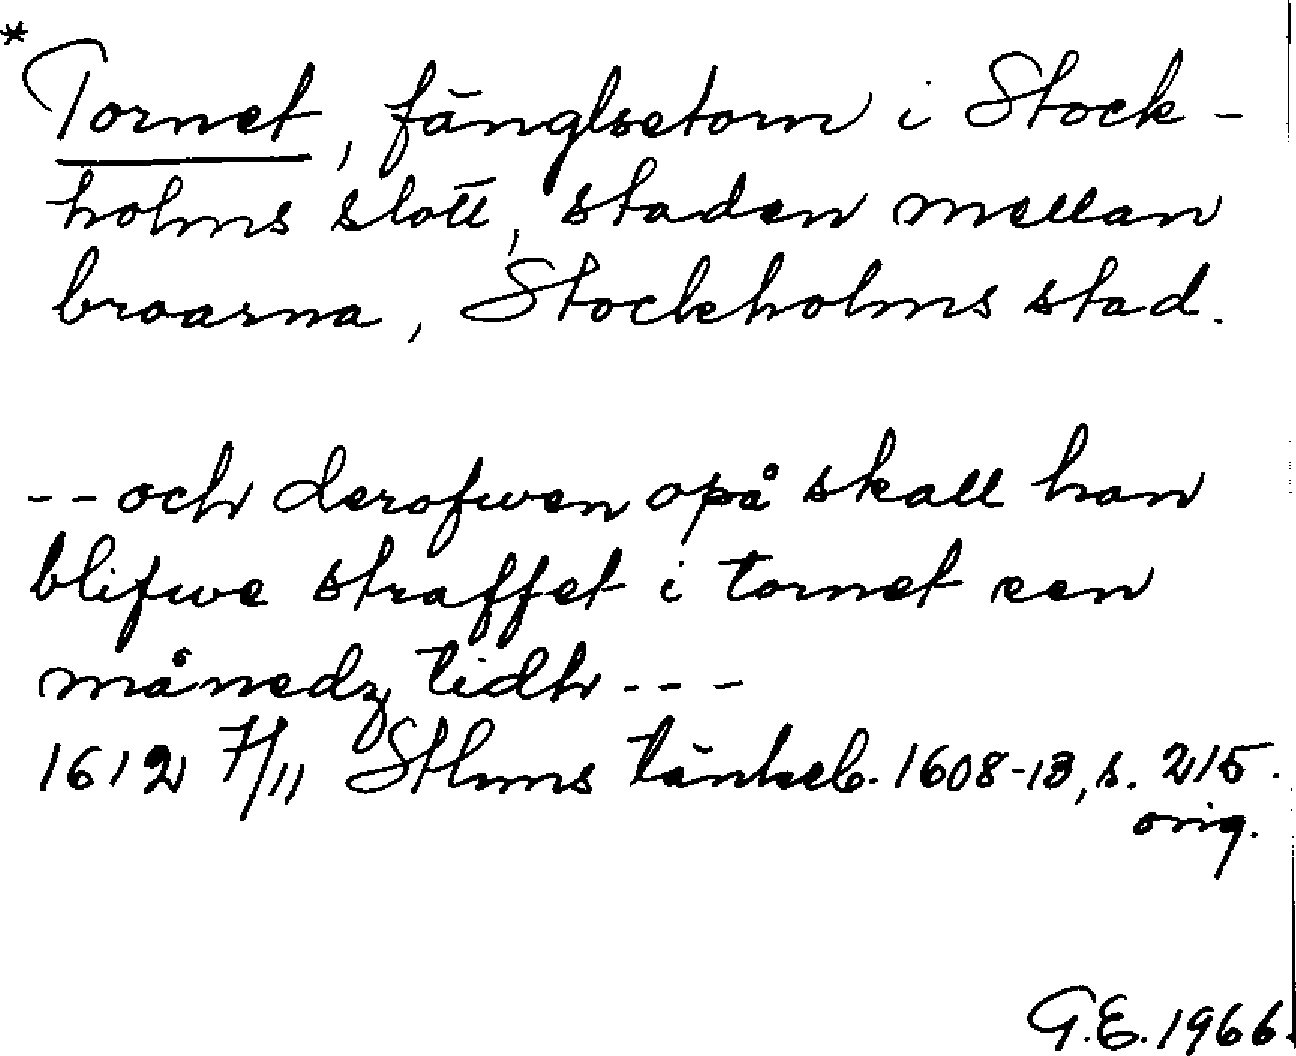 *
Tornet, fänglsetorn i Stock-
holms slott, staden mellan
broarna, Stockholms stad.
-- och derofwen opå skall han
blifwe straffet i tornet een
månedz tidh ---
1612 7/11 Sthms tänkeb. 1608-13, s. 215.
orig.
G.E. 1966.